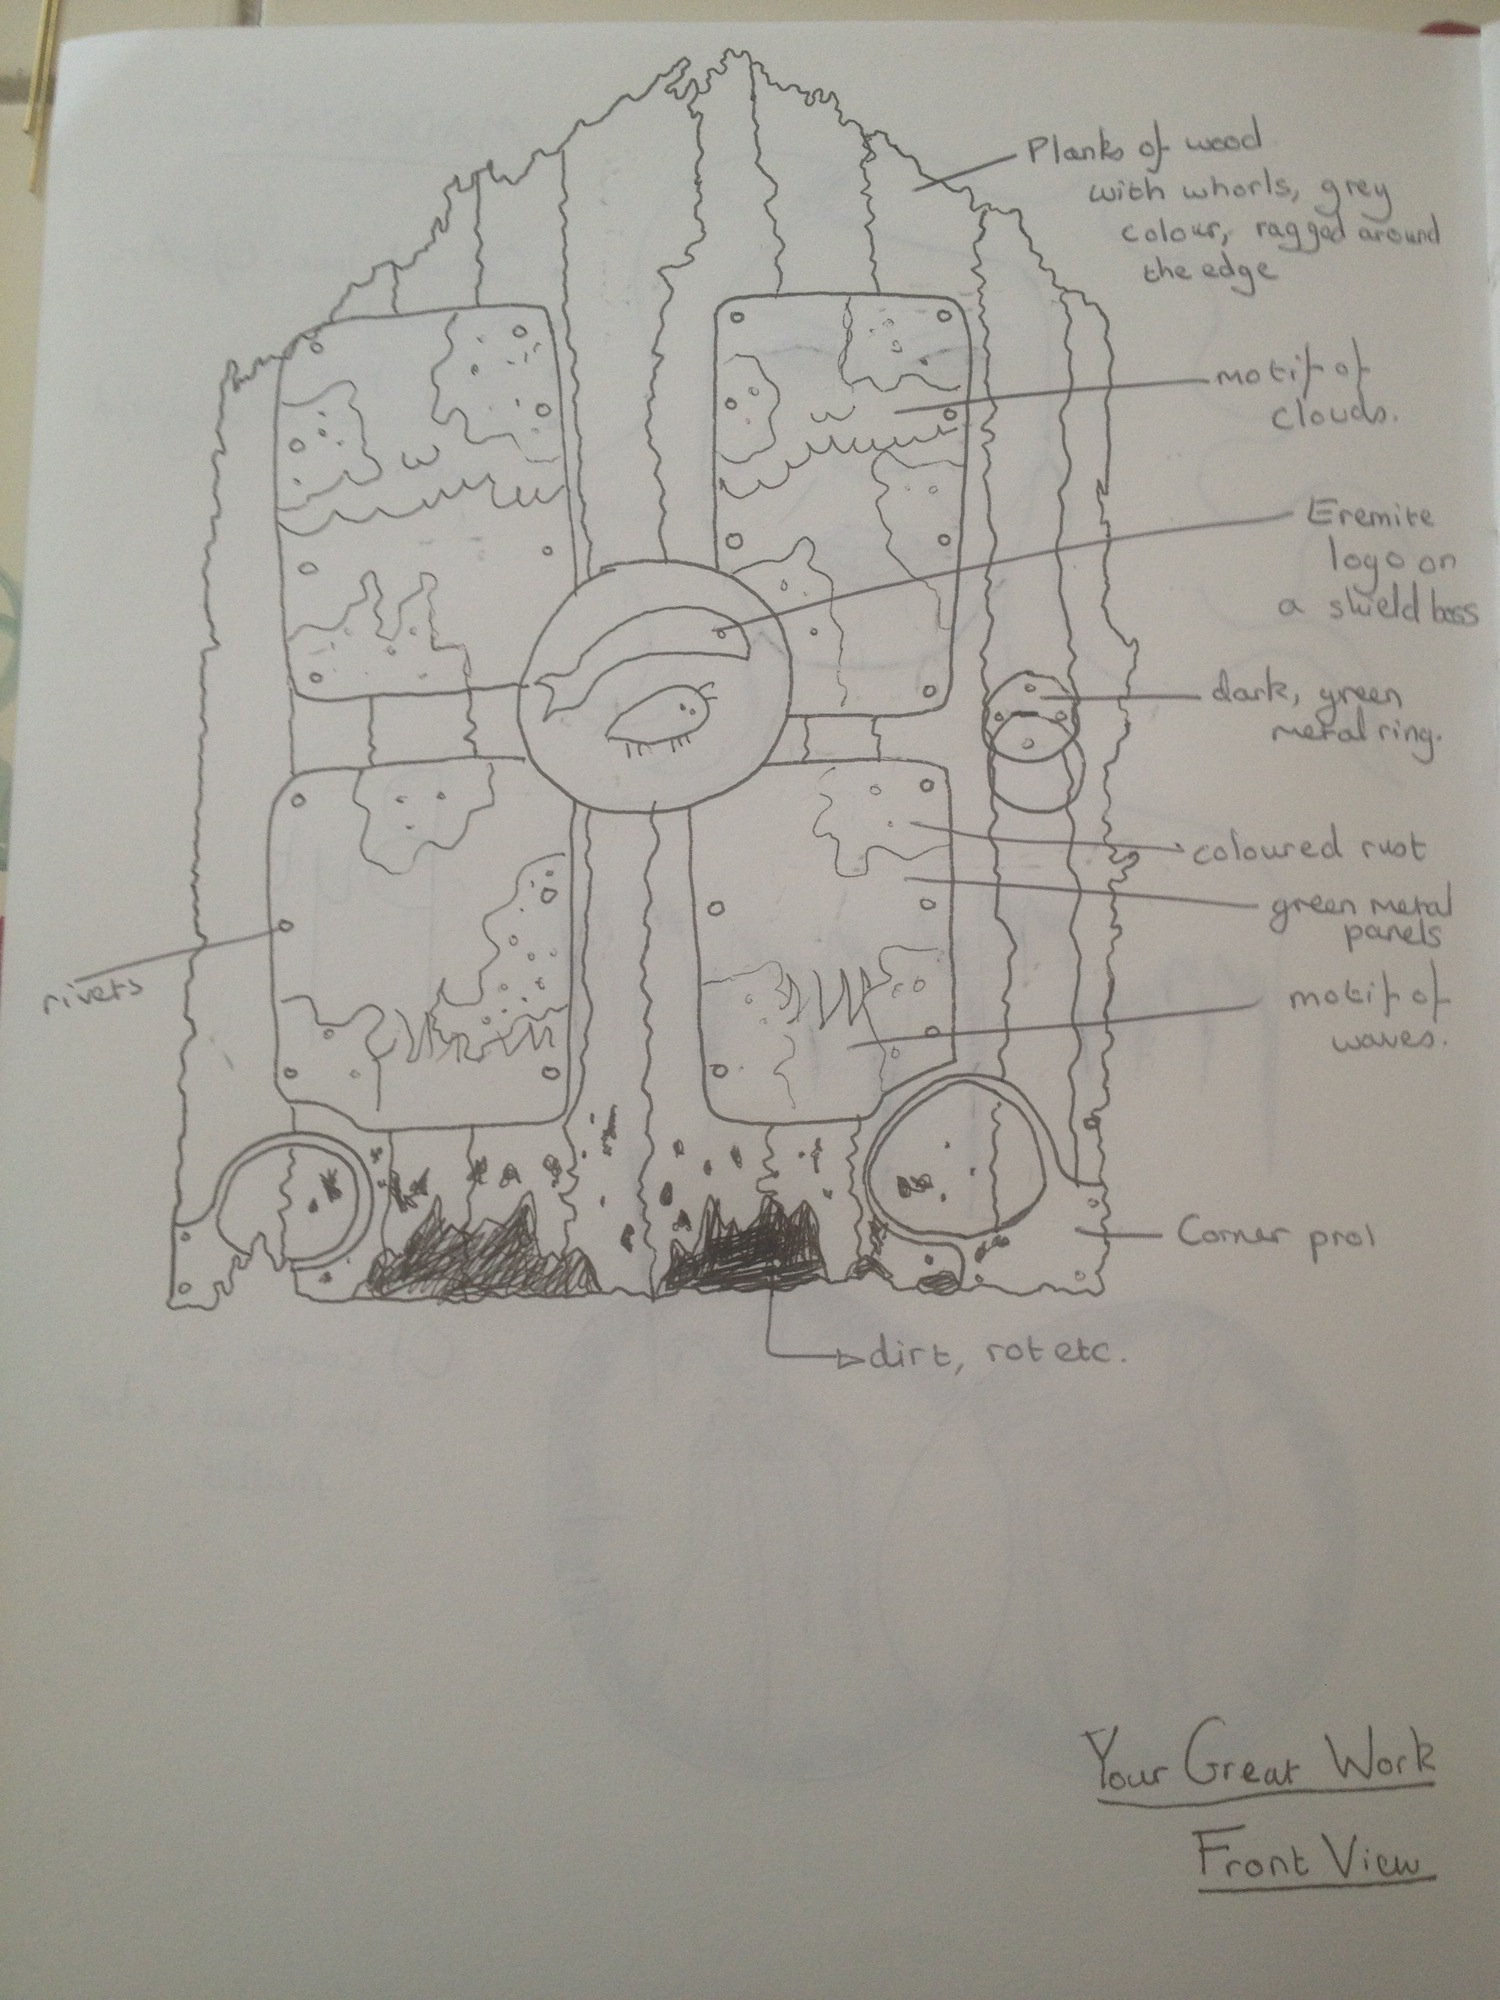 Planks of wood
with whorls, grey
colour, ragged around
the edge
motif of
clouds.
Eremite
logo on
a shield boss
dark, green
metal ring.
coloured rust
green metal
panels
rivets
motif of
waves.
Corner prol
dirt, rot etc.
Your Great Work
Front View